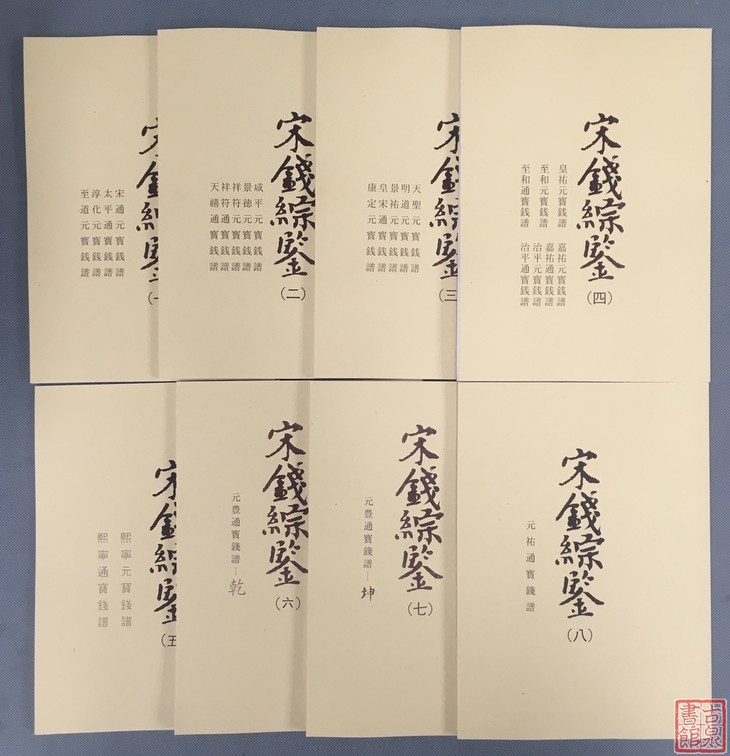 宋錢綜鑒
(一
宋通元寶錢譜
太平通寶錢譜
淳化元寶錢譜
至道元寶錢譜
宋錢綜鑒
(二)
咸平元寶錢譜
景德元寶錢譜
祥符元寶錢譜
祥符通寶錢譜
天禧通寶錢譜
宋錢綜鑒
(三
天聖元寶錢譜
明道元寶錢譜
景祐元寶錢譜
皇宋通寶錢譜
康定元寶錢譜
宋錢綜鑒
(四)
皇祐元寶錢譜 嘉祐元寶錢譜
嘉祐通寶錢譜
至和元寶錢譜 治平元寶錢譜
至和通寶錢譜 治平通寶錢譜
宋錢綜鑒
(五
熙寧元寶錢譜
熙寧通寶錢譜
宋錢綜鑒
(六)
元豊通寶錢譜—乾
宋錢綜鑒
(七)
元豊通寶錢譜—坤
宋錢綜鑒
(八)
元祐通寶錢譜
古泉
書館